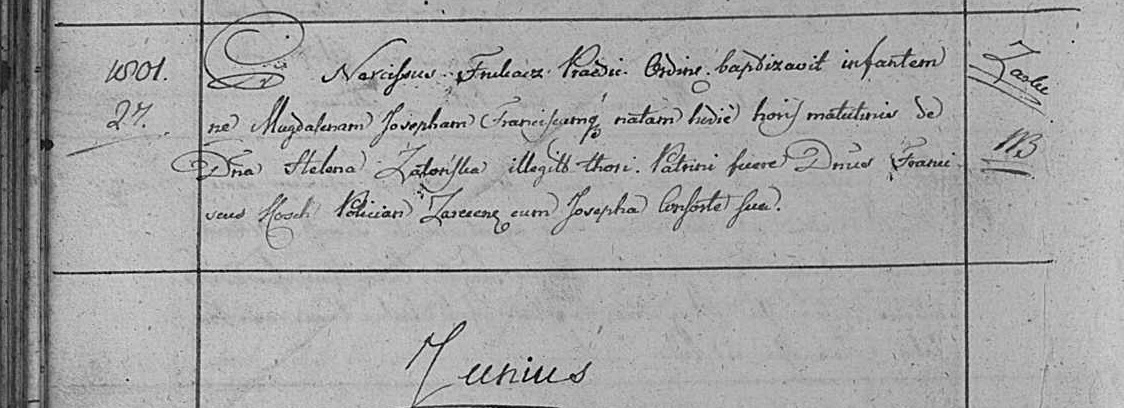 1801.
27.
Narcissus Praedic. Ordinis baptizavit infantem
ne Magdalenam Josepham Franciscamq natam hodie horis matutinis de
Dna Helena illegitt thori. Patrini fuere Dnus Franci
scus cum Josepha Consorte sua.
Junius